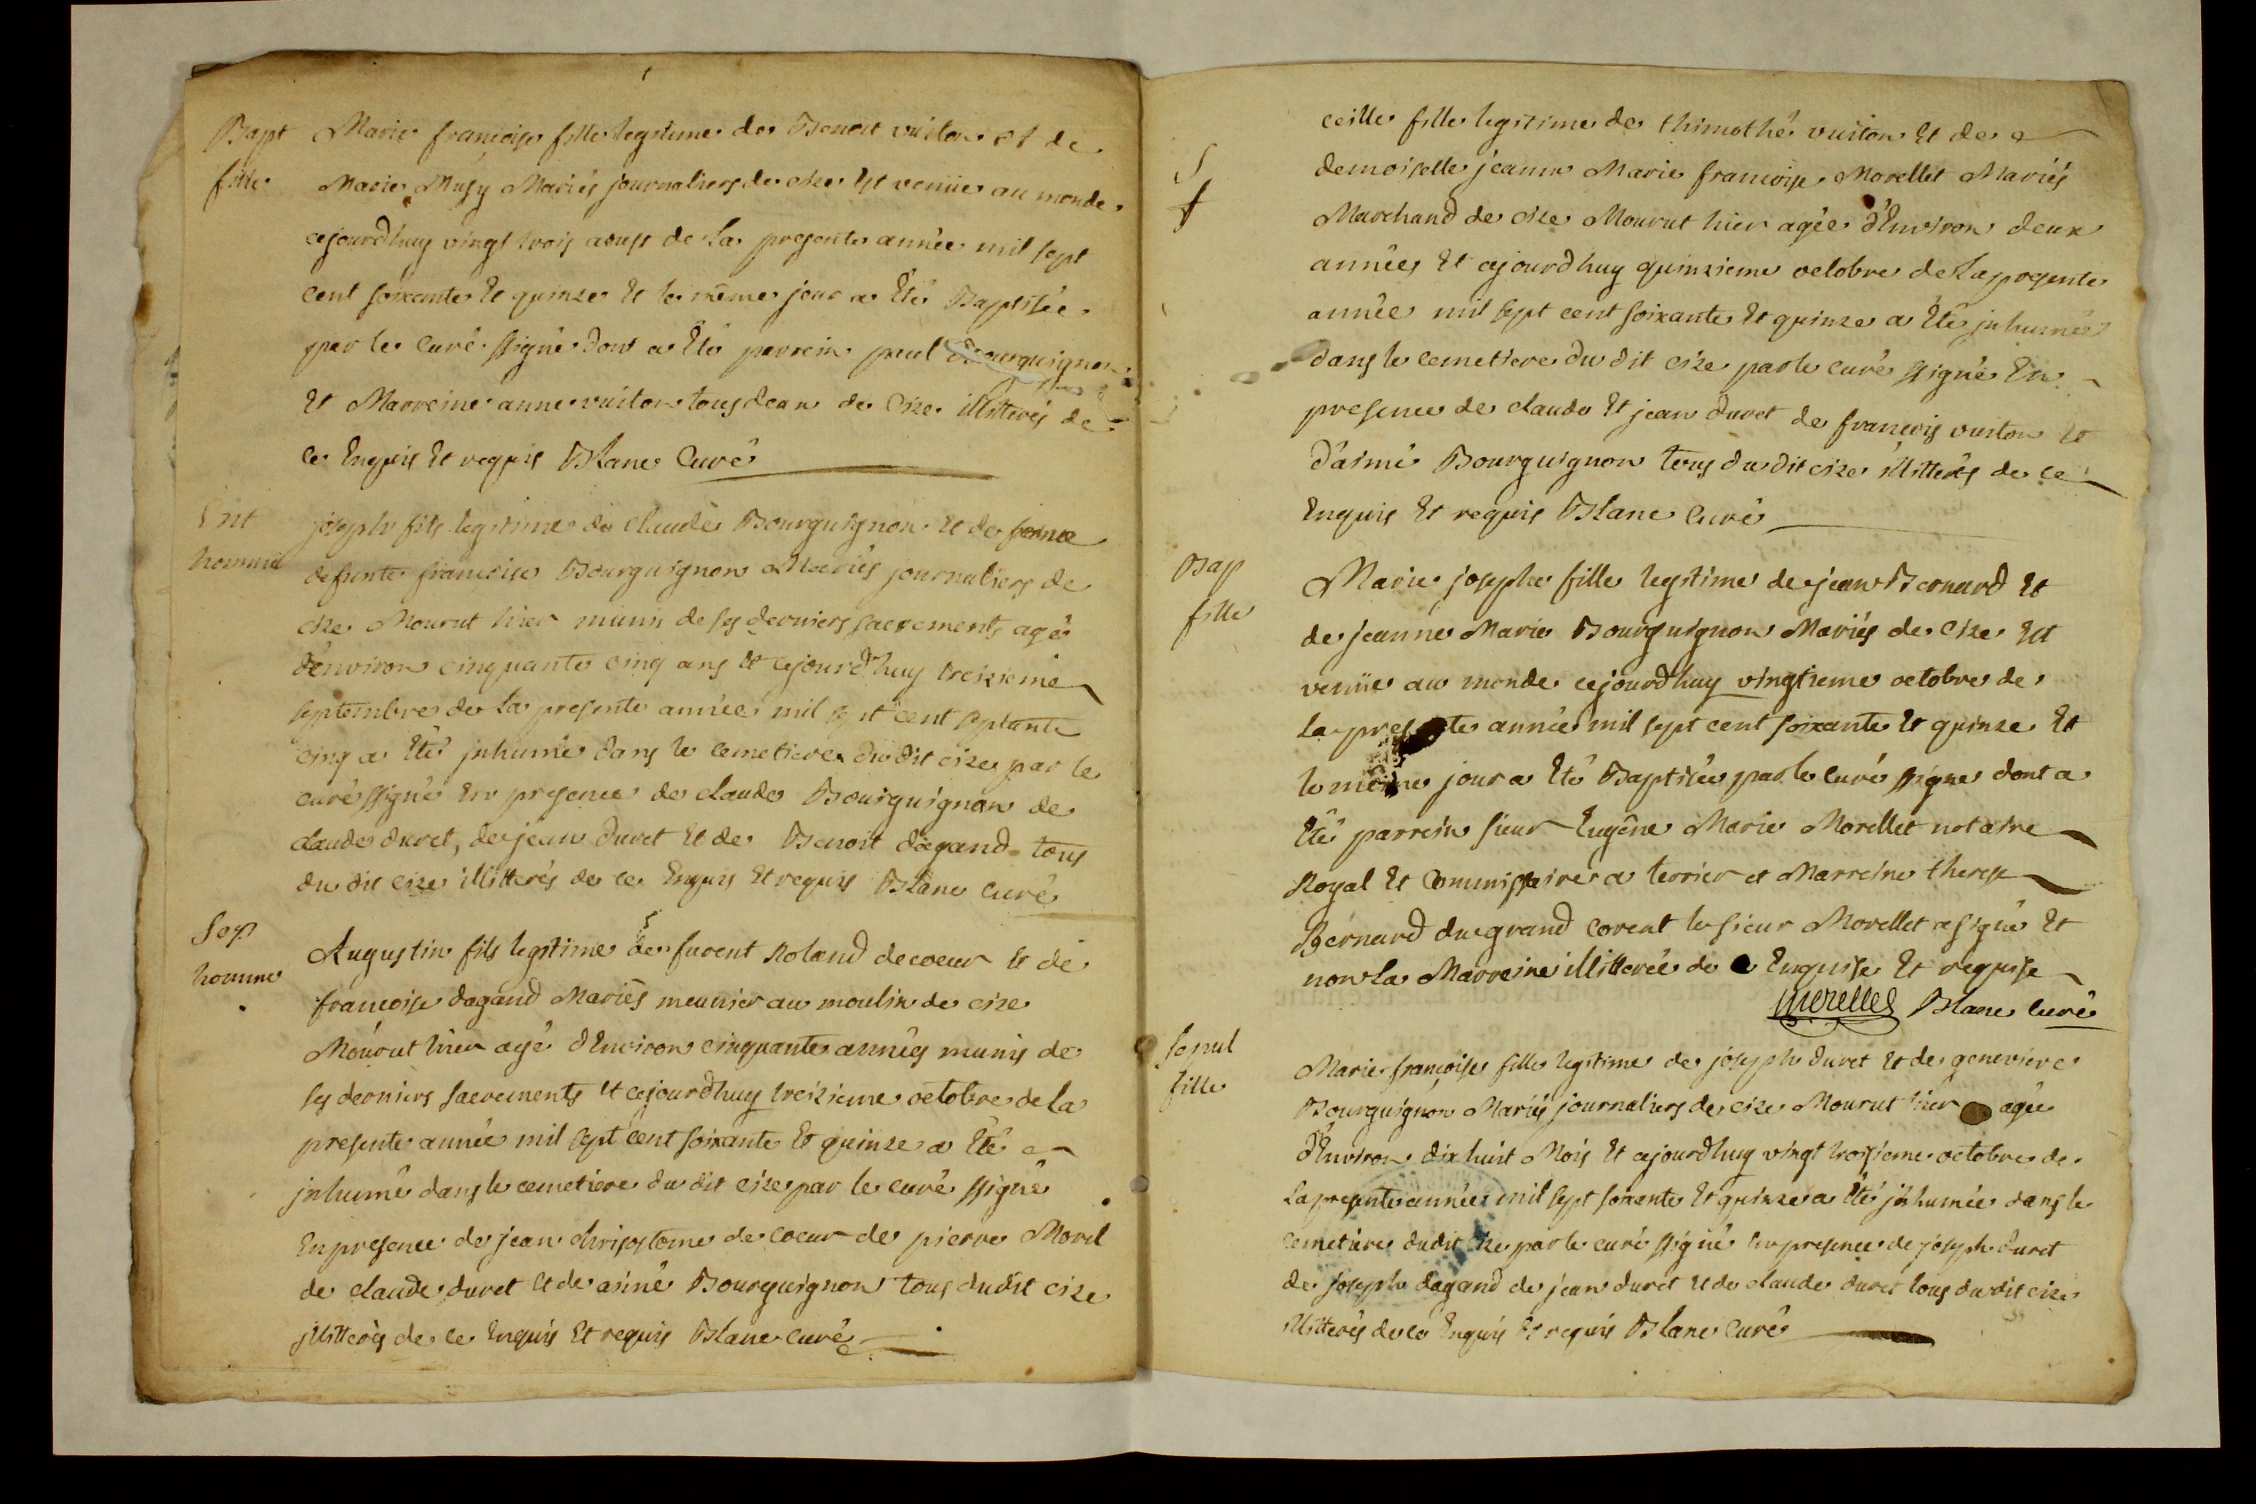 Bapt
fille
Marie françoise fille legitime de Benoit vuiton et de
Marie Musy Mariés journaliers de cize Est venüe au monde
cejourdhuy vingt trois aoust de la presente année mil sept
cent soixante Et quinze Et le même jour a Eté Baptisée
par le Curé ssigné dont a Eté parrein paul Bourguignon
Et Marreine anne vuiton tous deux de Cize illitterés de
ce Enquis Et requis Blanc Curé
Ent
homme
joseph fils legitime de claude Bourguignon Et de
defunte françoise Bourguignon Mariés journaliers de
cize Mourut hier munis de ses derniers sacrements agé
d'environ cinquante cinq ans Et cejourdhuy treizieme
septembre de la presente année mil sept cent septante
cinq a Eté jnhumé dans le cemetiere du dit cize par le
curé ssigné En presence de claude Bourguignon de
claude duret, de jean duret Et de Benoit dagand tous
du dit cize illitterés de ce Enquis Et requis Blanc curé
Sep
homme
Augustin fils legitime de furent Roland decoeur Et de
françoise dagand Mariés meunier au moulin de cize
Mourut hier agé d'Environ cinquante années munis de
ses derniers sacrements Et cejourdhuy treizieme octobre de la
presente année mil sept cent soixante Et quinze a Eté
jnhumé dans le cemetiere du dit cize par le curé ssigné
En presence de jean chrisostome de coeur de pierre Morel
de claude duret Et de aimé Bourguignon tous dudit cize
jllitterés de ce Enquis Et requis Blanc curé
S
f
ceille fille legitime de thimothé vuiton Et de
demoiselle jeanne Marie françoise Morellet Mariés
Marchand de cize Mourut hier agée d'Environ deux
années Et cejourdhuy quinzieme octobre de la presente
année mil sept cent soixante Et quinze a Eté jnhumée
dans le cemetiere du dit cize par le curé ssigné En
presence de claude Et jean duret de françois vuiton Et
d'aimé Bourguignon tous du dit cize illitterés de ce
Enquis Et requis Blanc Curé
Bap
fille
Marie josephe fille legitime de jean Bernard Et
de jeanne Marie Bourguignon Mariés de cize Est
venüe au monde cejourdhuy vingtieme octobre de
la presente année mil sept cent soixante Et quinze Et
le même jour a Eté Baptisée par le curé ssigné dont a
Eté parrein sieur Eugêne Marie Morellet notaire
Royal Et Commissaire a terrier et Marreine therese
Bernard du grand corent le sieur Morellet a signé Et
non la Marreine illitterée de ce Enquise Et requise
Morellet Blanc Curé
Sepul
fille
Marie françoise fille legitime de joseph duret Et de genevieve
Bourguignon Mariés journaliers de cize Mourut hier agée
d'Environ dix huit Mois Et cejourdhuy vingt troisieme octobre de
la presente année mil sept soixante Et quinze a Eté jnhumée dans le
cemetiere dudit cize par le curé ssigné En presence de joseph duret
de joseph dagand de jean duret Et de claude duret tous du dit cize
illitterés de ce Enquis Et requis Blanc Curé